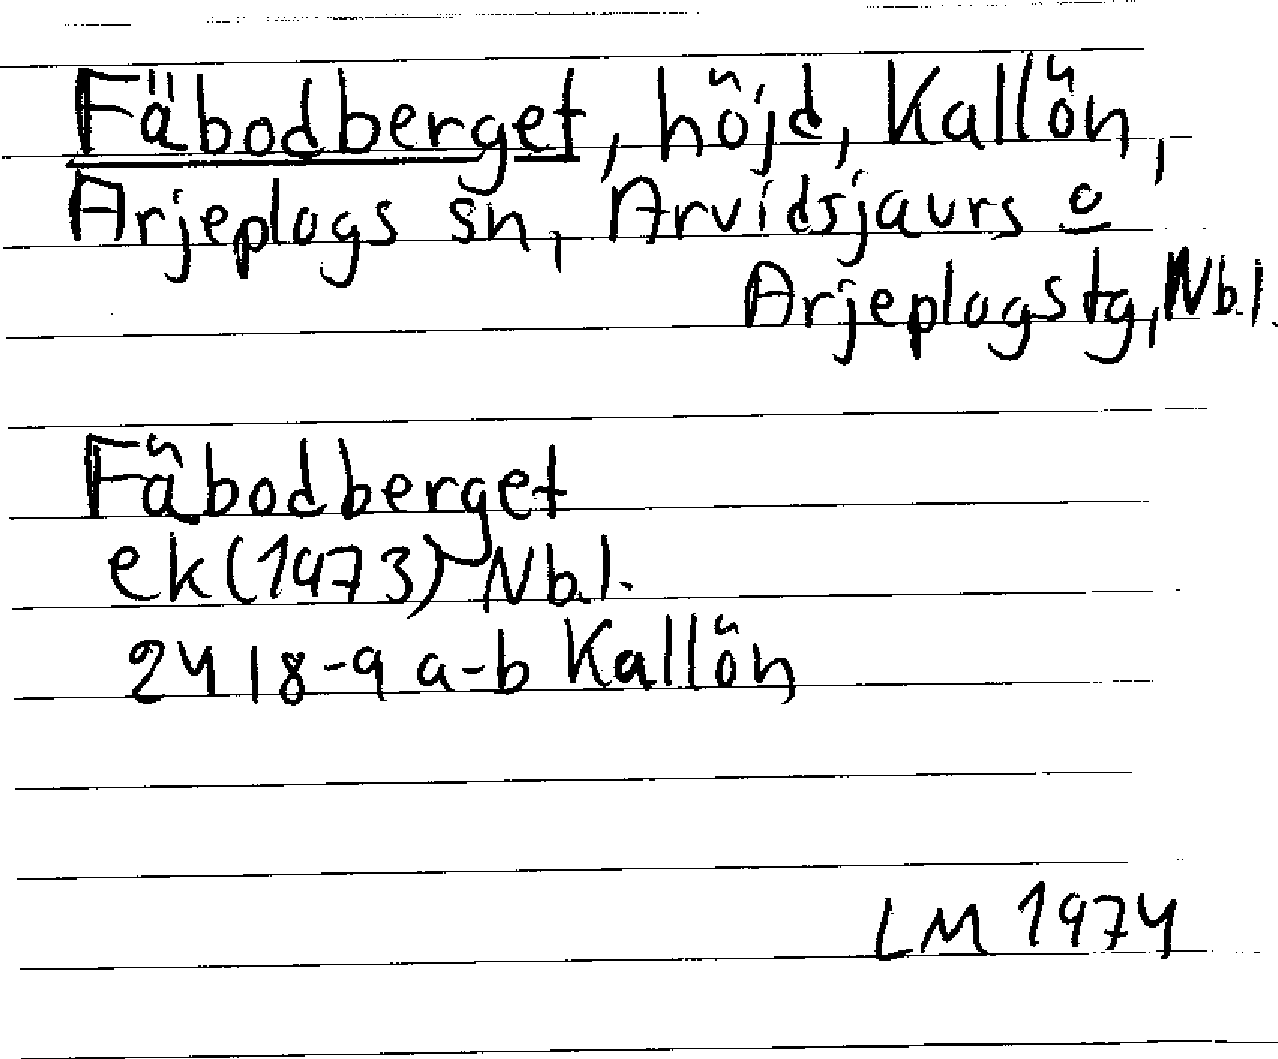 Fäbodberget, höjd, Kallön,
Arjeplogs sn, Arvidsjaurs o
Arjeplogs tg, Nb.l.
Fäbodberget
ek (1973) Nb.l.
24 I 8-9 a-b Kallön
LM 1974